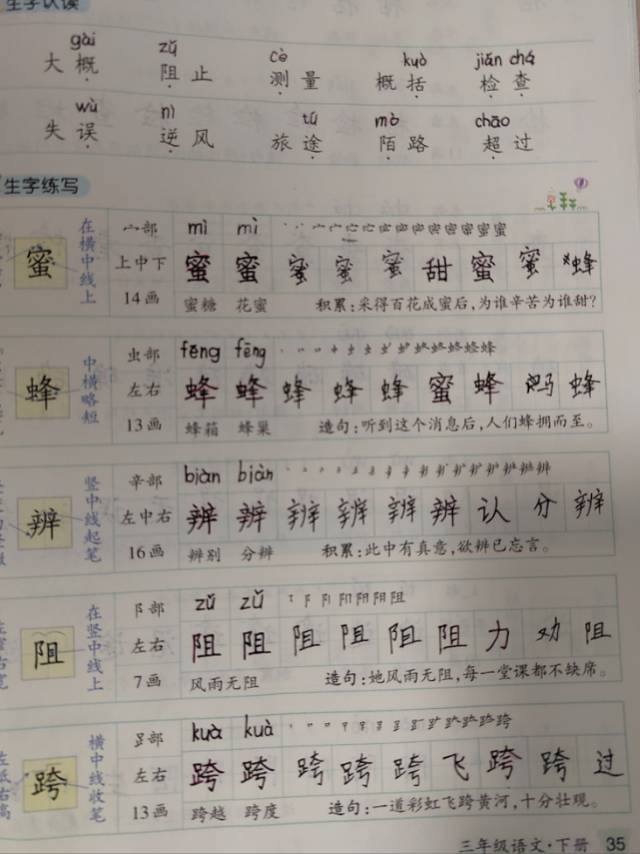 生字认读
gài zǔ cè kuò jiǎn chá
大概 阻止 测量 概括 检查
wù nì tú mò chāo
失误 逆风 旅途 陌路 超过
生字练写
蜜
在横中线上
宀部 mì mì
上中下 蜜 蜜 蜜 蜜 蜜 甜 蜜 蜜 蜂
14画 蜜糖 花蜜 积累:采得百花成蜜后,为谁辛苦为谁甜?
蜂
中横略短
虫部 fēng fēng
左右 蜂 蜂 蜂 蜂 蜂 蜜 蜂 蚂 蜂
13画 蜂箱 蜂巢 造句:听到这个消息后,人们蜂拥而至。
辨
竖中线起笔
辛部 biàn biàn
左中右 辨 辨 辨 辨 辨 辨 认 分 辨
16画 辨别 分辨 积累:此中有真意,欲辨已忘言。
阻
在竖中线上
阝部 zǔ zǔ
左右 阻 阻 阻 阻 阻 阻 力 劝 阻
7画 风雨无阻 造句:她风雨无阻,每一堂课都不缺席。
跨
横中线收笔
𧾷部 kuà kuà
左右 跨 跨 跨 跨 跨 飞 跨 跨 过
13画 跨越 跨度 造句:一道彩虹飞跨黄河,十分壮观。
三年级语文·下册 35